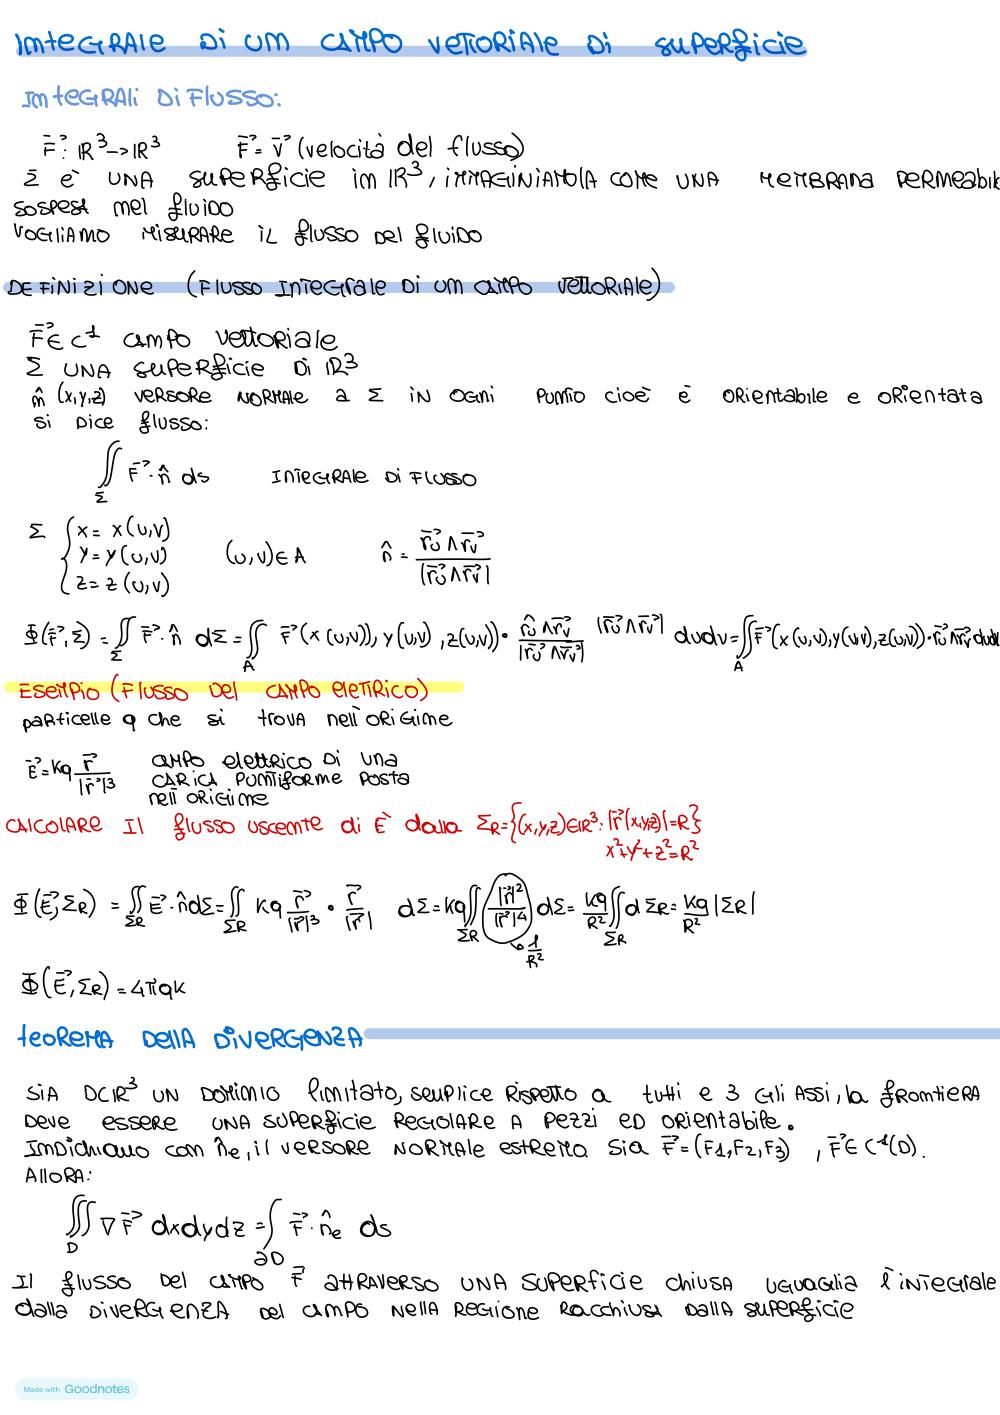 INTEGRALE DI UN CAMPO VETTORIALE DI SUPERFICIE
INTEGRALI DI FLUSSO:
F⃗: ℝ³->ℝ³ F⃗= v⃗ (velocità del flusso)
Σ è UNA SUPERFICIE in ℝ³, IMMAGINIAMOLA COME UNA MEMBRANA PERMEABIL
SOSPESA NEL FLUIDO
VOGLIAMO MISURARE IL FLUSSO DEL FLUIDO
DEFINIZIONE (FLUSSO INTEGRALE DI UN CAMPO VETTORIALE)
F⃗ ∈ C¹ CAMPO VETTORIALE
Σ UNA SUPERFICIE DI ℝ³
n̂ (x,y,z) VERSORE NORMALE a Σ IN OGNI PUNTO cioè è ORIENTABILE e ORIENTATA
SI DICE FLUSSO:
∬_Σ F⃗·n̂ ds INTEGRALE DI FLUSSO
Σ { x= x(u,v)
y= y(u,v) (u,v)∈A n̂ = r⃗u∧r⃗v / |r⃗u∧r⃗v|
z= z(u,v)
Φ(F⃗,Σ) = ∬_Σ F⃗·n̂ dΣ = ∬_A F⃗(x(u,v)), y(u,v), z(u,v))· r̂u∧r⃗v / |r⃗u∧r⃗v| |r⃗u∧r⃗v| dudv = ∬_A F⃗(x(u,v),y(u,v),z(u,v))·r⃗u∧r⃗v dud
ESEMPIO (FLUSSO DEL CAMPO ELETTRICO)
particelle q che si TROVA nell'ORIGINE
E⃗=Kq r⃗/|r⃗|³ CAMPO elettrico DI UNA
CARICA PUNTIFORME POSTA
nell'ORIGINE
CALCOLARE IL FLUSSO USCENTE di E⃗ dalla Σ_R={(x,y,z)∈ℝ³: |r⃗(x,y,z)|=R}
x²+y²+z²=R²
Φ(E⃗,Σ_R) = ∬_ΣR E⃗·n̂dΣ = ∬_ΣR Kq r⃗/|r⃗|³ · r⃗/|r⃗| dΣ = Kq ∬_ΣR |r⃗|²/|r⃗|⁴ dΣ = Kq/R² ∬_ΣR dΣ_R = Kq/R² |Σ_R|
1/R²
Φ(E⃗,Σ_R) = 4πqK
TEOREMA DELLA DIVERGENZA
SIA D⊂ℝ³ UN DOMINIO limitato, semplice RISPETTO a tutti e 3 GLI ASSI, la FRONTIERA
DEVE ESSERE UNA SUPERFICIE REGOLARE A PEZZI ED ORIENTABILE.
INDICHIAMO con n̂e, il VERSORE NORMALE ESTERNA SIA F⃗=(F1,F2,F3) , F⃗∈C¹(D).
ALLORA:
∭_D ∇F⃗ dxdydz = ∫_∂D F⃗·n̂e ds
IL FLUSSO DEL CAMPO F⃗ ATTRAVERSO UNA SUPERFICIE CHIUSA UGUAGLIA l'INTEGRALE
dalla DIVERGENZA DEL CAMPO NELLA REGIONE RACCHIUSA DALLA SUPERFICIE
Made with Goodnotes